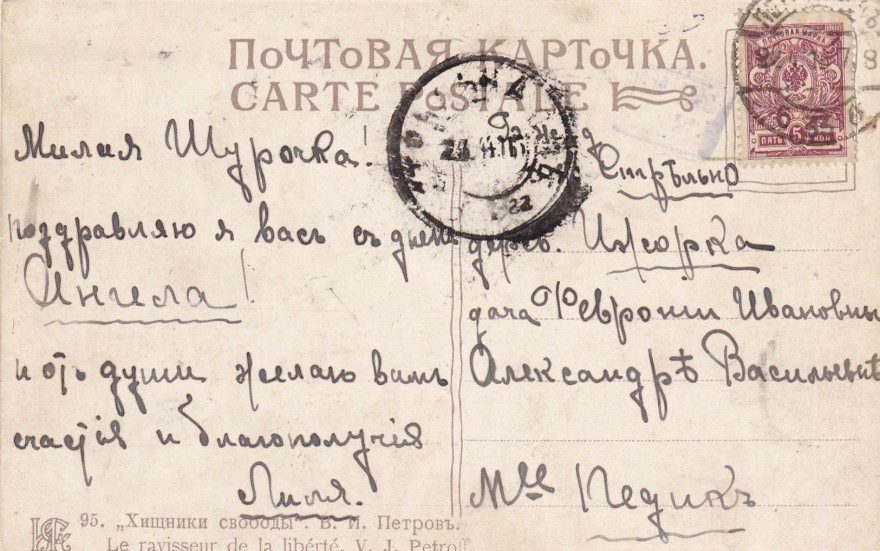 ПОЧТОВАЯ КАРТОЧКА.
CARTE POSTALE
Милая Шурочка!
поздравляю я васъ съ днемъ
Ангела!
и отъ души желаю вамъ
счастія и благополучія
Лиля.
Стрѣльно
дерев. Ижорка
дача Февроніи Ивановны
Александрѣ Васильевнѣ
Mlle Педикъ
22
ПЯТЬ 5 КОП
95. „Хищники свободы". В. И. Петровъ.
Le ravisseur de la libérté. V. J. Petroff